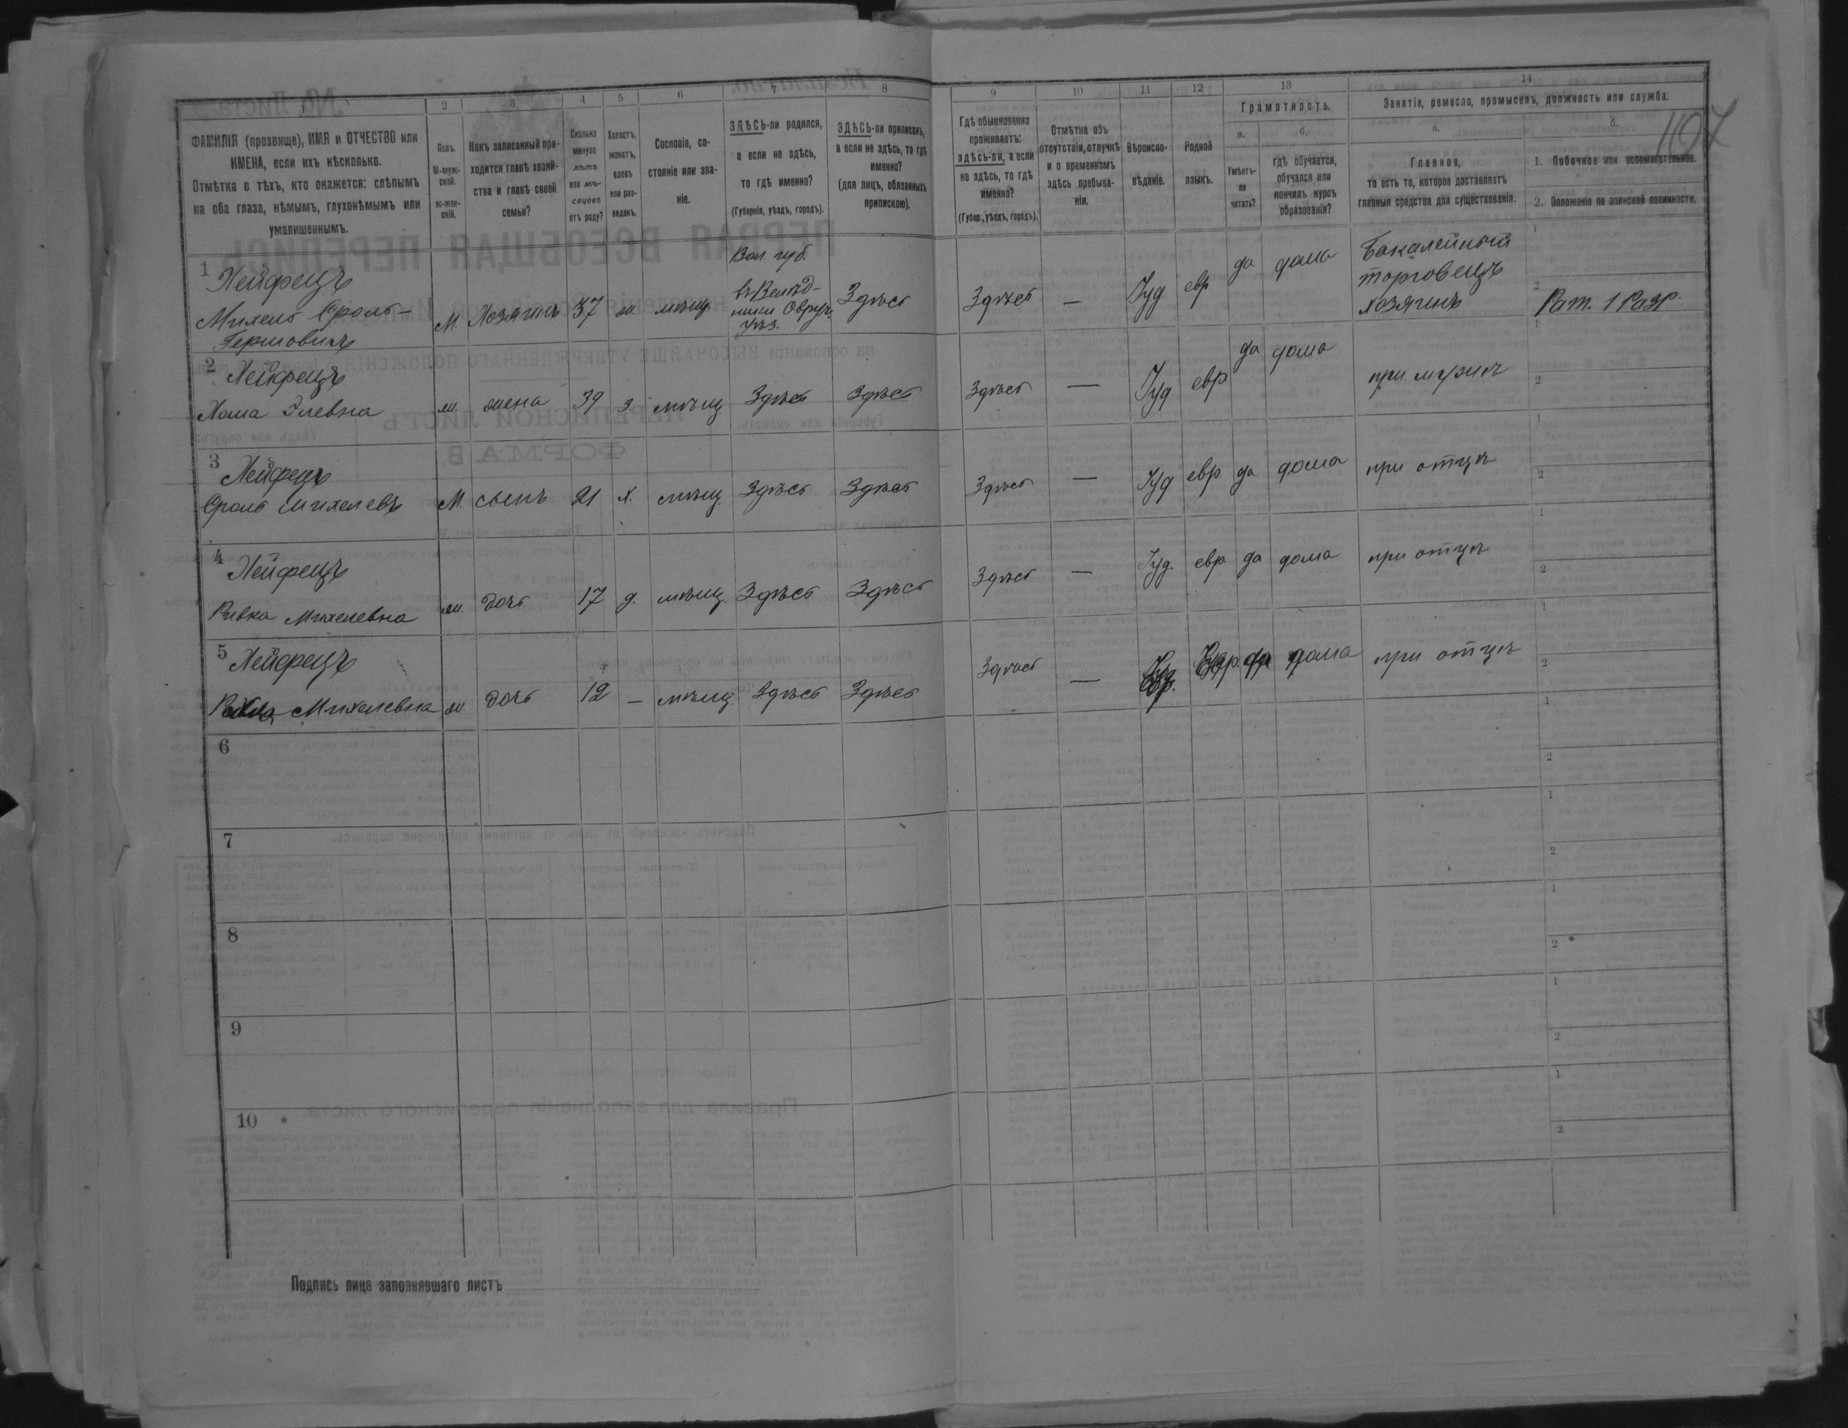 1 2 3 4 5 6 7 8 9 10 11 12 13 14
107
ФАМИЛІЯ (прозвище), ИМЯ и ОТЧЕСТВО или
ИМЕНА, если ихъ нѣсколько.
Отмѣтка о тѣхъ, кто окажется: слѣпымъ
на оба глаза, нѣмымъ, глухонѣмымъ или
умалишеннымъ.
Полъ.
М-муж-
ской.
ж-жен-
скій.
Какъ записанный при-
ходится главѣ хозяй-
ства и главѣ своей
семьи?
Сколько
минуло
лѣтъ
или мѣ-
сяцевъ
отъ роду?
Холостъ,
женатъ,
вдовъ
или раз-
веденъ.
Сословіе, со-
стояніе или зва-
ніе.
ЗДѢСЬ-ли родился,
а если не здѣсь,
то гдѣ именно?
(Губернія, уѣздъ, городъ).
ЗДѢСЬ-ли приписанъ,
а если не здѣсь, то гдѣ
именно?
(для лицъ, обязанныхъ
припискою).
Гдѣ обыкновенно
проживаетъ:
здѣсь-ли, а если
не здѣсь, то гдѣ
именно?
(Губер., уѣздъ, городъ).
Отмѣтка объ
отсутствіи, отлучкѣ
и о временномъ
здѣсь пребыва-
ніи.
Вѣроиспо-
вѣданіе.
Родной
языкъ.
Грамотность.
а.
Умѣетъ-
ли
читать?
б.
Гдѣ обучается,
обучался или
кончилъ курсъ
образованія?
Занятіе, ремесло, промыселъ, должность или служба.
а.
Главное,
то есть то, которое доставляетъ
главныя средства для существованія.
б.
1. Побочное или вспомогательное.
2. Положеніе по воинской повинности.
1 Хейфецъ
Михель Сроль-
Гершовичъ
М. Хозяинъ 37 ж. мѣщ.
Вол губ.
въ Велѣд-
ники Овруч.
уѣз.
Здѣсь Здѣсь — Іуд евр да дома
Бакалейный
торговецъ
хозяинъ
1
2 Рат. 1 Разр.
2 Хейфецъ
Хома Элевна ж. жена 39 з мѣщ Здѣсь Здѣсь Здѣсь — Іуд евр да дома при мужѣ
1
2
3 Хейфецъ
Сроль Михелевъ М. сынъ 21 х. мѣщ. Здѣсь Здѣсь Здѣсь — Іуд евр да дома при отцѣ
1
2
4 Хейфецъ
Ривка Михелевна ж. дочь 17 д. мѣщ Здѣсь Здѣсь Здѣсь — Іуд. евр да дома при отцѣ
1
2
5 Хейфецъ
Михелевна ж дочь 12 — мѣщ. Здѣсь Здѣсь Здѣсь — да дома при отцѣ
1
2
6
1
2
7
1
2
8
1
2
9
1
2
10
1
2
Подпись лица заполнявшаго листъ